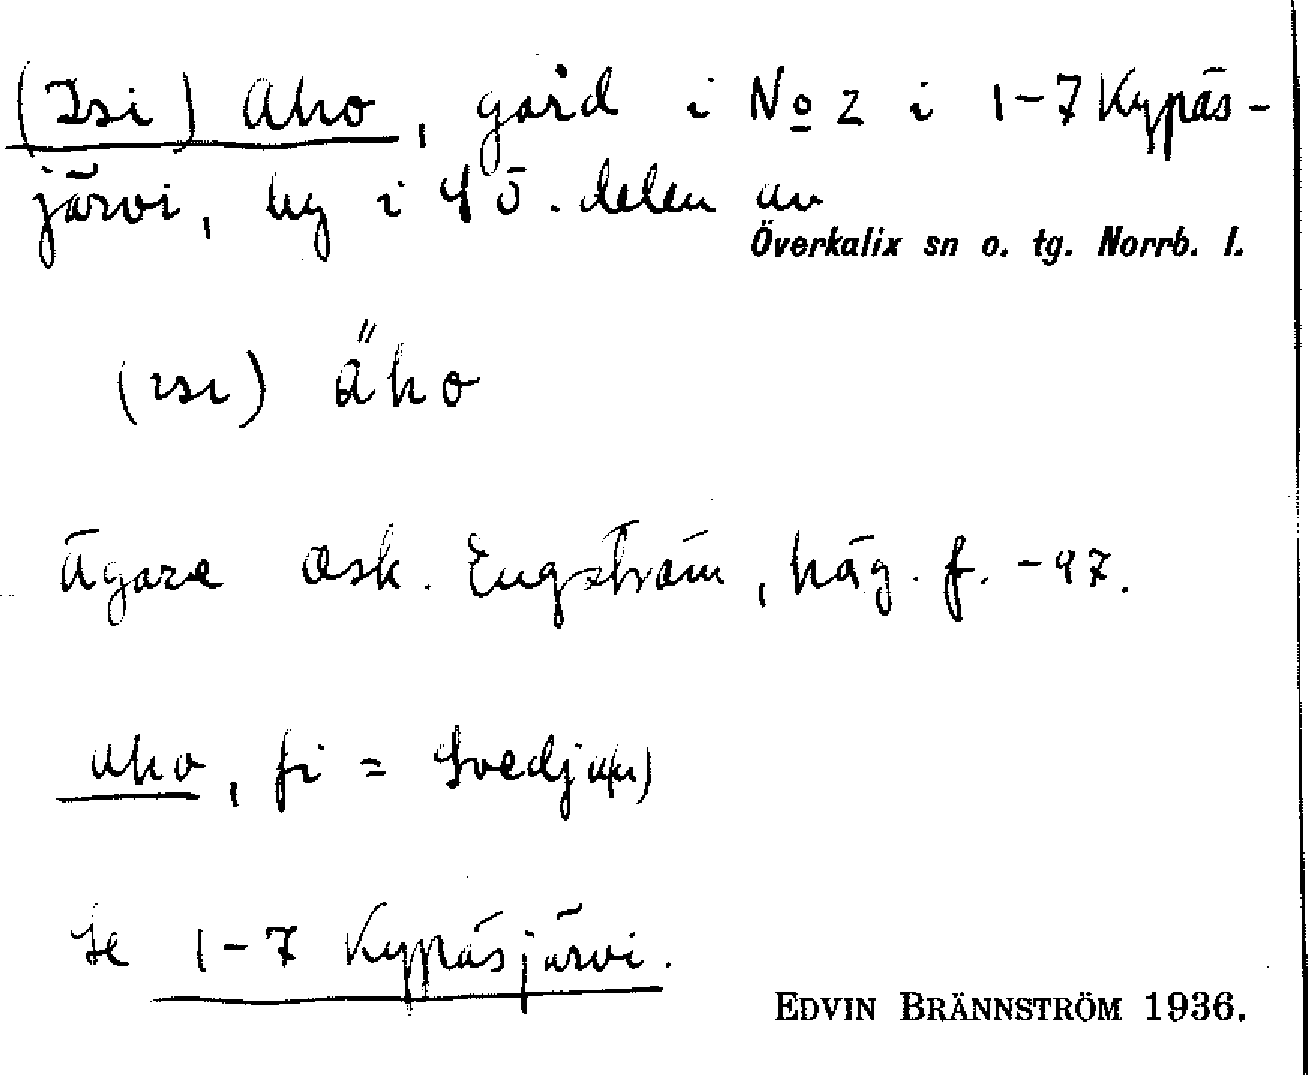 (Isi) Aho, gård i No 2 i 1-7 Kypäs-
järvi, by i S Ö. delen av
Överkalix sn o. tg. Norrb. l.
(ısı) a̋ho
Ägare Osk. Engström, häg. f. -97.
aho, fi = Svedja(n)
Se 1-7 Kypäsjärvi.
EDVIN BRÄNNSTRÖM 1936.